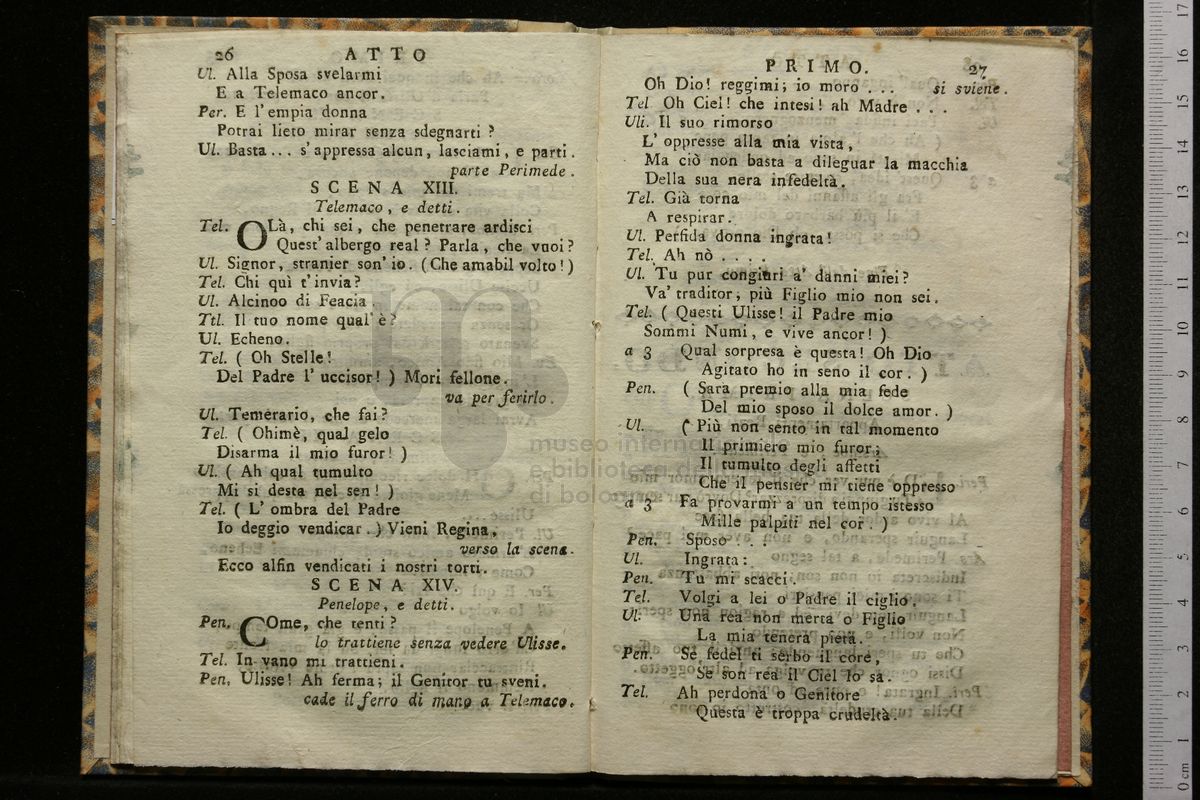 26 ATTO
Ul. Alla Sposa svelarmi
E a Telemaco ancor.
Per. E l' empia donna
Potrai lieto mirar senza sdegnarti ?
Ul. Basta... s' appressa alcun, lasciami, e parti.
parte Perimede.
SCENA XIII.
Telemaco, e detti.
Tel. OLà, chi sei, che penetrare ardisci
Quest' albergo real ? Parla, che vuoi ?
Ul. Signor, stranier son' io. (Che amabil volto!)
Tel. Chi quì t' invia?
Ul. Alcinoo di Feacia.
Ttl. Il tuo nome qual' è?
Ul. Echeno.
Tel. ( Oh Stelle!
Del Padre l' uccisor! ) Mori fellone.
va per ferirlo.
Ul. Temerario, che fai?
Tel. ( Ohimè, qual gelo
Disarma il mio furor! )
Ul. ( Ah qual tumulto
Mi si desta nel sen! )
Tel. ( L' ombra del Padre
Io deggio vendicar.) Vieni Regina,
verso la scena.
Ecco alfin vendicati i nostri torti.
SCENA XIV.
Penelope, e detti.
Pen. COme, che tenti?
lo trattiene senza vedere Ulisse.
Tel. In vano mi trattieni.
Pen. Ulisse! Ah ferma; il Genitor tu sveni.
cade il ferro di mano a Telemaco.
PRIMO. 27
Oh Dio! reggimi; io moro ... si sviene.
Tel Oh Ciel! che intesi! ah Madre ...
Uli. Il suo rimorso
L' oppresse alla mia vista,
Ma ciò non basta a dileguar la macchia
Della sua nera infedeltà.
Tel. Già torna
A respirar.
Ul. Perfida donna ingrata!
Tel. Ah nò ....
Ul. Tu pur congiuri a' danni miei?
Va' traditor; più Figlio mio non sei.
Tel. ( Questi Ulisse! il Padre mio
Sommi Numi, e vive ancor! )
a 3 Qual sorpresa è questa! Oh Dio
Agitato ho in seno il cor. )
Pen. ( Sara premio alla mia fede
Del mio sposo il dolce amor. )
Ul. ( Più non sento in tal momento
Il primiero mio furor;
Il tumulto degli affetti
Che il pensier mi tiene oppresso
a 3 Fa provarmi a un tempo istesso
Mille palpiti nel cor. )
Pen. Sposo ...
Ul. Ingrata:
Pen. Tu mi scacci.
Tel. Volgi a lei o Padre il ciglio.
Ul. Una rea non merta o Figlio
La mia tenera pietà.
Pen. Se fedel ti serbo il core,
Se son rea il Ciel lo sa.
Tel. Ah perdona o Genitore
Questa è troppa crudeltà.
museo internazionale
e biblioteca della
di bologna
0 cm 1 2 3 4 5 6 7 8 9 10 11 12 13 14 15 16 17